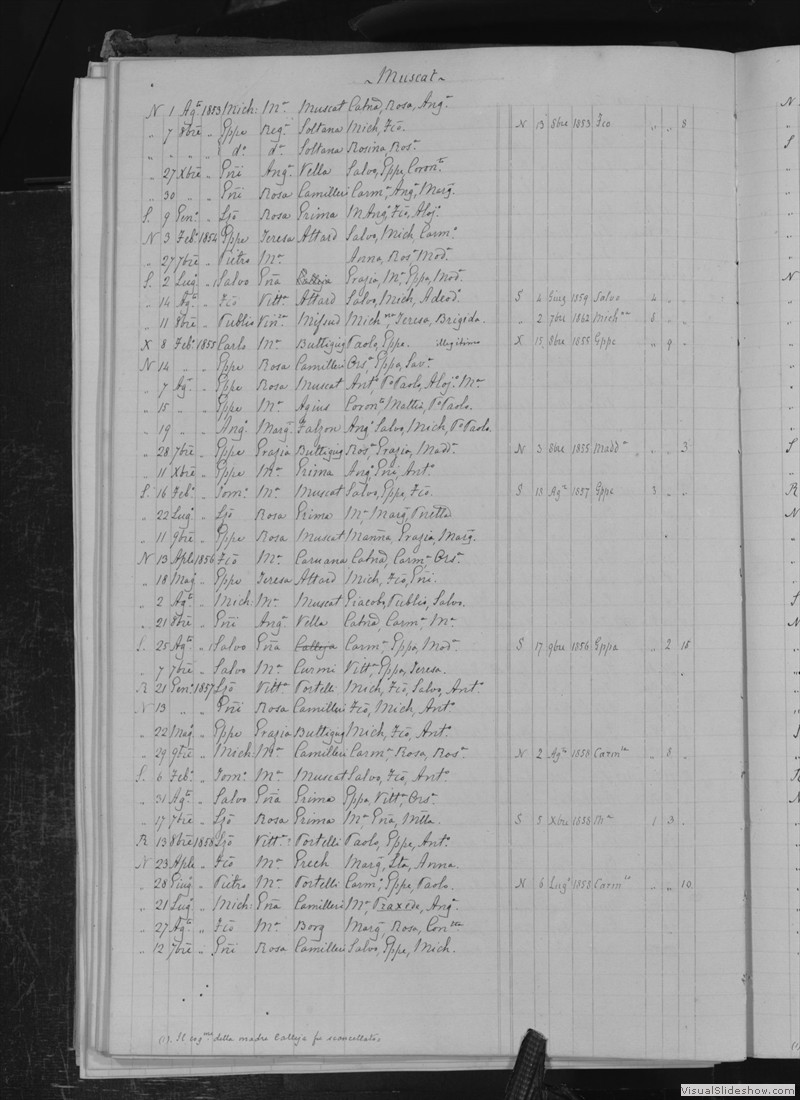 Muscat
N 1 Agto 1853 Mich: Ma Muscat Catna, Rosa, Anga
„ 7 8bre „ Gppe Rega Soltana Mich, Fco. N 13 8bre 1853 Fco „ „ 8
„ „ „ „ do do Soltana Rosina, Rosa
„ 27 Xbre „ Gñi Anga Vella Salvo, Gppe, Coronta
„ 30 „ „ Gñi Rosa Camilleri Carma, Anga, Marga
S. 9 Geno „ Ljo Rosa Grima M Anga, Fco, Aloja
N 3 Febo 1854 Gppe Teresa Attard Salvo, Mich, Carmo
„ 27 7bre „ Pietro Ma Anna, Rosa, Moda
S. 2 Lugo „ Salvo Gña Calleja Grazia, Ma, Gppa, Moda
„ 14 Agto „ Fco Vitta Attard Salvo, Mich, Adeoda S 4 Giug 1859 Salvo 4 „ „
„ 11 8bre „ Publio Vinza Mifsud Michna, Teresa, Brigida. „ 2 7bre 1862 Michna 8 „ „
X 8 Febo 1855 Carlo Ma Buttigieg Paolo, Gppe. Illegittimo X 15 8bre 1855 Gppe „ 9 „
N 14 „ „ Gppe Rosa Camilleri Orsa, Gppa, Sava
„ 7 Agto „ Gppe Rosa Muscat Anta, Pa Paolo, Aloja Ma
„ 15 „ „ Gppe Ma Agius Coronta, Mattia, Pa Paolo.
„ 19 „ „ Ango Marga Falzon Ango Salvo, Mich, Pa Paolo.
„ 28 7bre „ Gppe Grazia Buttigieg Rosa, Grazia, Madda. N 3 8bre 1855 Madda „ „ 3
„ 11 Xbre „ Gppe Ma Grima Anga, Gña, Anta
S. 16 Febo „ Domo Ma Muscat Salvo, Gppa, Fco. S 18 Agto 1857 Gppa 3 „ „
„ 22 Lugo „ Ljo Rosa Grima Ma, Marga, Piella
„ 11 9bre „ Gppe Rosa Muscat Marina, Grazia, Marga
N 13 Aple 1856 Fco Ma Caruana Catna, Carma Orsa
„ 18 Mag „ Gppe Teresa Attard Mich, Fco, Gñi.
„ 2 Agto „ Mich: Ma Muscat Giacobo, Publio, Salvo.
„ 21 8bre „ Gñi Anga Vella Catna, Carma Ma
S. 25 Agto „ Salvo Gña Calleja Carma, Gppa, Moda S 17 9bre 1856 Gppa „ 2 18
„ 7 7bre „ Salvo Ma Curmi Vitta, Gppa, Teresa.
R 21 Geno 1857 Ljo Vitta Portelli Mich, Fco, Salvo, Anto
N 13 „ „ Gñi Rosa Camilleri Fco, Mich, Anto
„ 22 Mag „ Gppe Grazia Buttigieg Mich, Fco, Anto
„ 29 9bre „ Mich: Ma Camilleri Carma, Rosa, Rosa. N 2 Agto 1858 Carmla „ 8 „
S. 6 Febo „ Domo Ma Muscat Salvo, Fco, Anto
„ 31 Agto „ Salvo Gña Grima Gppa, Vitta, Orsa.
„ 17 7bre „ Ljo Rosa Grima Ma Gña, Mtta. S 5 Xbre 1858 Ma 1 3 „
R 13 8bre 1858 Ljo Vitta: Portelli Paolo, Gppe, Anto
N 23 Aple „ Fco Ma Grech Marga, Lta, Anna
„ 28 Giug „ Pietro Ma Portelli Carma, Gppe, Paolo. N 6 Lugo 1858 Carmla „ „ 10
„ 21 Lugo „ Mich: Gña Camilleri Ma, Praxede, Anga
„ 27 Agto „ Fco Ma Borg Marga, Rosa, Conza
„ 12 7bre „ Gñi Rosa Camilleri Salvo, Gppe, Mich.
(1). Il cogme della madre Calleja fu scancellato
VisualSlideshow.com